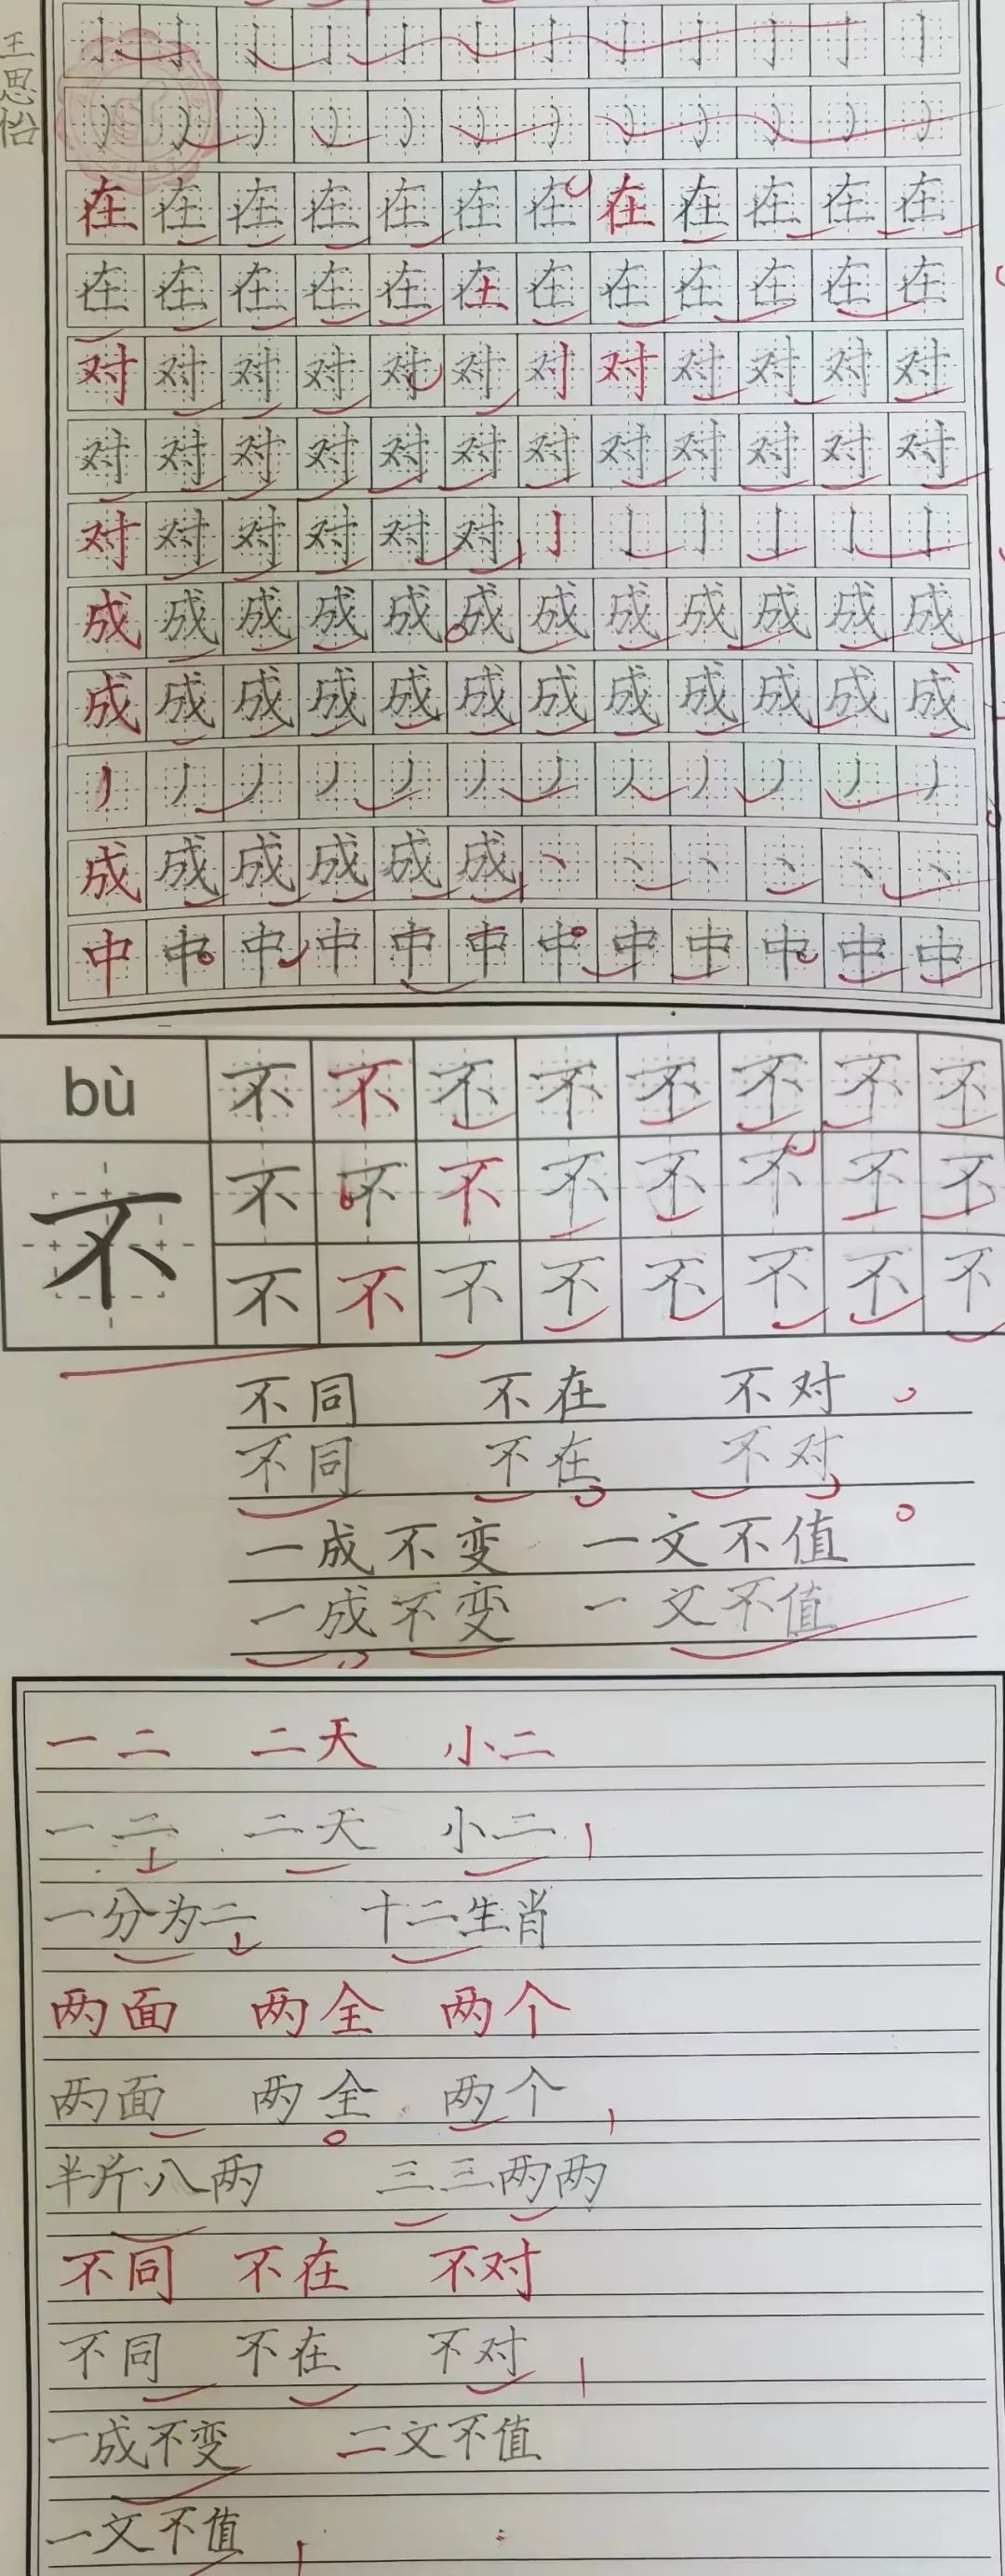 王思怡
亅 亅 亅 亅 亅 亅 亅 亅 亅 亅 亅 亅
在 在 在 在 在 在 在 在 在 在 在 在
在 在 在 在 在 在 在 在 在 在 在 在
对 对 对 对 对 对 对 对 对 对 对 对
对 对 对 对 对 对 对 对 对 对 对 对
对 对 对 对 对 对 亅 亅 亅 亅 亅 亅
成 成 成 成 成 成 成 成 成 成 成 成
成 成 成 成 成 成 成 成 成 成 成 成
丿 丿 丿 丿 丿 丿 丿 丿 丿 丿 丿 丿
成 成 成 成 成 成 丶 丶 丶 丶 丶 丶
中 中 中 中 中 中 中 中 中 中 中 中
bù 不 不 不 不 不 不 不 不
不 不 不 不 不 不 不 不 不
不 不 不 不 不 不 不 不
不同 不在 不对
不同 不在 不对
一成不变 一文不值
一成不变 一文不值
一二 二天 小二
一二 二天 小二
一分为二 十二生肖
两面 两全 两个
两面 两全 两个
半斤八两 三三两两
不同 不在 不对
不同 不在 不对
一成不变 二文不值
一文不值